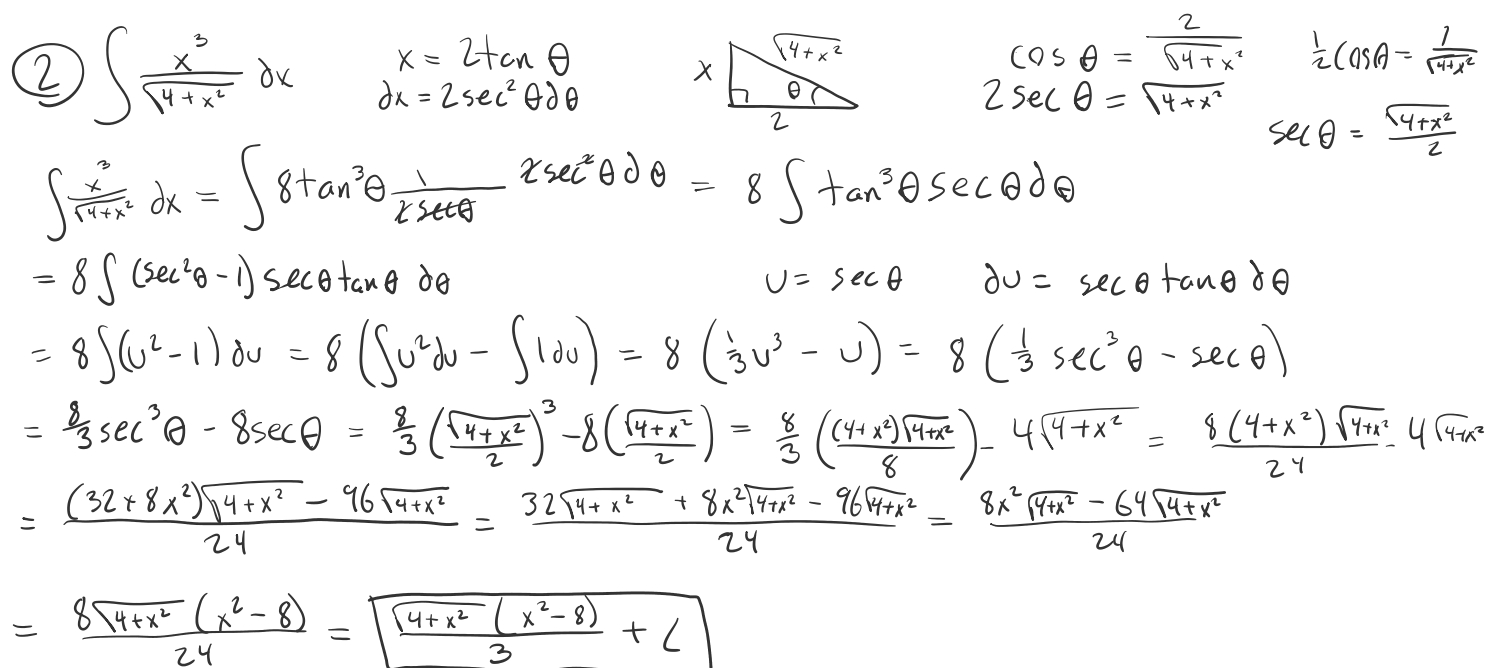 ② ∫ x³/√(4+x²) dx x = 2tan θ x √(4+x²) θ 2 cos θ = 2/√(4+x²) ½cosθ = 1/√(4+x²)
dx = 2sec²θdθ 2 sec θ = √(4+x²) secθ = √(4+x²)/2
∫ x³/√(4+x²) dx = ∫ 8tan³θ 1/(2secθ) 2sec²θdθ = 8 ∫ tan³θ secθdθ
= 8 ∫ (sec²θ - 1) secθtanθ dθ u = secθ du = secθtanθdθ
= 8∫(u² - 1) du = 8 (∫u²du - ∫1du) = 8 (⅓u³ - u) = 8 (⅓ sec³θ - secθ)
= 8/3 sec³θ - 8secθ = 8/3 (√(4+x²)/2)³ - 8(√(4+x²)/2) = 8/3 ((4+x²)√(4+x²)/8) - 4√(4+x²) = 8(4+x²)√(4+x²)/24 - 4√(4+x²)
= ((32+8x²)√(4+x²) - 96√(4+x²))/24 = (32√(4+x²) + 8x²√(4+x²) - 96√(4+x²))/24 = (8x²√(4+x²) - 64√(4+x²))/24
= 8√(4+x²)(x²-8)/24 = √(4+x²)(x²-8)/3 + C